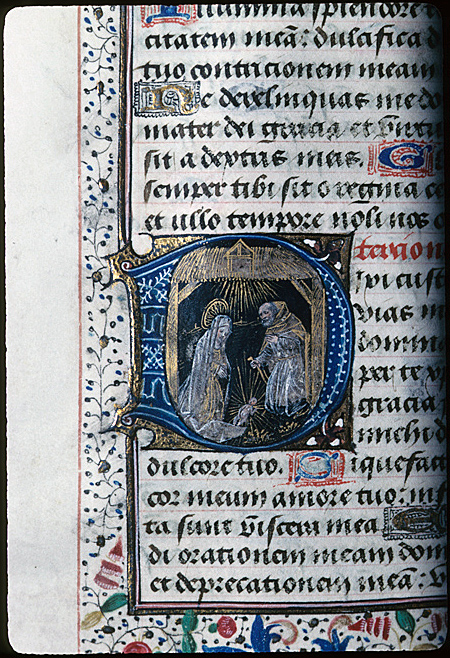 Illumina splendore
citatem meā: dulcifica
tuo contricionem meam
Ne derelinquas me do
mater dei gracia et virtu
sit a deptus meis. G
semper tibi sit o regina ce
et ullo tempore noli nos
tercion
Qui cust
vias m
domina
per te v
gracia
michi d
dulcore tuo. Liquefac
cor meum amore tuo: inf
ta sunt viscera mea
di orationem meam dom
et deprecationem meā: v